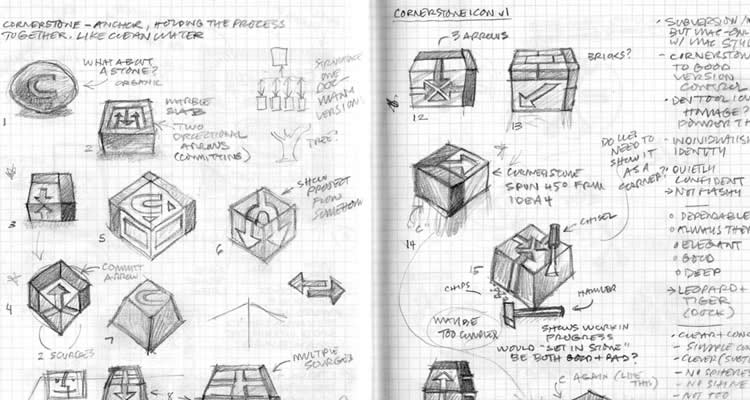 CORNERSTONE - ANCHOR, HOLDING THE PROCESS
TOGETHER. LIKE CLEAN WATER
WHAT ABOUT
A STONE?
ORGANIC
C
1
MARBLE
SLAB
2
TWO
DIRECTIONAL
ARROWS
(COMMITTING)
ONE
DOC -
MANY
VERSIONS
TREE?
3
C
5
SHOW
PROJECT
FLOW
SOMEHOW
6
COMMIT
ARROW
4
2 SOURCES
C
7
8
MULTIPLE
SOURCES
CORNERSTONE ICON v1
3 ARROWS
12
BRICKS?
13
CORNERSTONE
SPUN 45° FROM
IDEA 4
14
DO WE
NEED TO
SHOW IT
AS A
CORNER?
CHISEL
15
CHIPS
HAMMER
MAYBE
TOO COMPLEX
SHOWS WORK IN
PROGRESS
WOULD "SET IN STONE"
BE BOTH GOOD + BAD?
C AGAIN (LIKE
THIS)
• SUBVERSION
BUT MAC-ONL
W/ MAC STYL
- CORNERSTON
TO GOOD
VERSION
CONTROL
• DEV TOOL ICON
HOMAGE?
- INDIVIDUALISTIC
IDENTITY
- QUIETLY
CONFIDENT
→ NOT FLASHY
○ DEPENDABLE
○ ALWAYS THE
○ ELEGANT
○ BOLD
○ DEEP
→ LEOPARD +
TIGER
(DOCK)
• CLEAR + CONC
- SIMPLE CON
- CLEVER (SUBT
- NO SPHERES
- NO SHINE
- NOT TOO